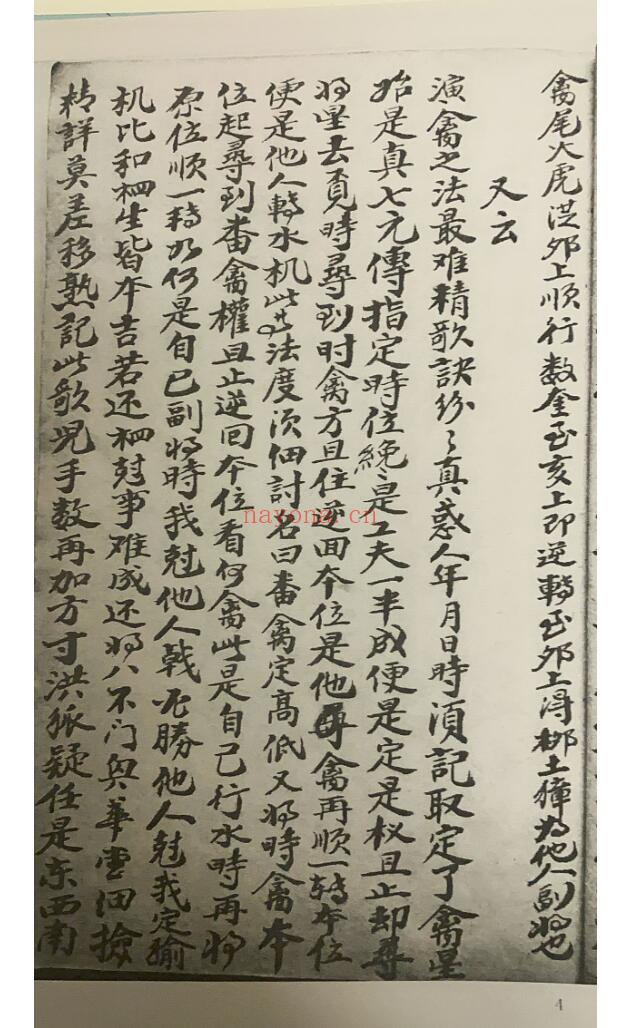 禽尾火虎洪夘上順行数奎至亥上即逆轉至夘上得柳土獐為他人副将也
又云
演禽之法最难精歌訣紛々真惑人年月日時須記取定了禽星
始是真七元傳指定時位纔是工夫一半成便是定是权且止却尋
将星去覓時尋到时禽方且住逆回本位是他禽再順一轉本位
便是他人轉水机此些法度须细討名曰番禽定高低又将時禽本
位起尋到番禽權且止逆回本位看何禽此是自己行水時再将
原位順一轉如何是自己副将時我尅他人戰必勝他人尅我定输
机比和相生皆本吉若还相尅事难成还将八不门與華堂细撿
精詳莫差移熟記此歌児手数再加方寸洪狐疑任是东西南
nayona.cn
4